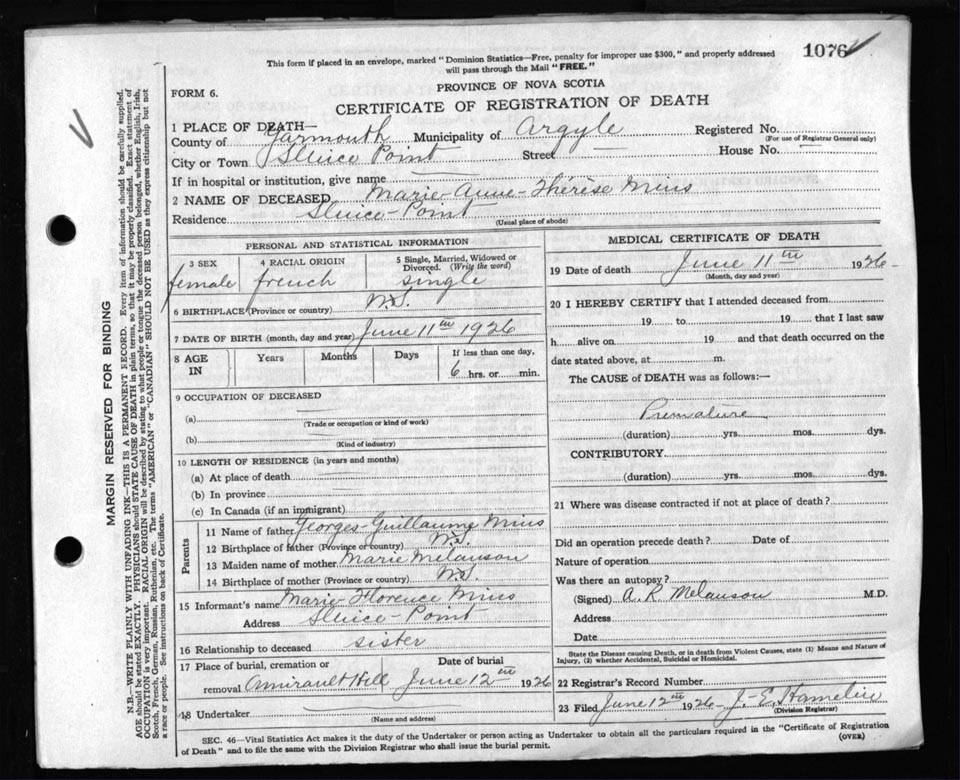 1076
This form if placed in an envelope, marked "Dominion Statistics—Free, penalty for improper use $300," and properly addressed
will pass through the Mail "FREE."
PROVINCE OF NOVA SCOTIA
FORM 6.
CERTIFICATE OF REGISTRATION OF DEATH
1 PLACE OF DEATH—
County of Yarmouth Municipality of Argyle Registered No.
(For use of Registrar General only)
City or Town Sluice Point Street — House No. —
If in hospital or institution, give name —
2 NAME OF DECEASED Marie-Anne-Thérèse Mius
Residence Sluice-Point
(Usual place of abode)
PERSONAL AND STATISTICAL INFORMATION
3 SEX 4 RACIAL ORIGIN 5 Single, Married, Widowed or
Divorced. (Write the word)
female french single
6 BIRTHPLACE (Province or country) N.S.
7 DATE OF BIRTH (month, day and year) June 11th 1926
8 AGE IN Years Months Days If less than one day,
6 hrs. or min.
9 OCCUPATION OF DECEASED
(a)
(Trade or occupation or kind of work)
(b)
(Kind of industry)
10 LENGTH OF RESIDENCE (in years and months)
(a) At place of death
(b) In province
(c) In Canada (if an immigrant)
Parents
11 Name of father Georges-Guillaume Mius
12 Birthplace of father (Province or country) N.S.
13 Maiden name of mother Marie Melanson
14 Birthplace of mother (Province or country) N.S.
15 Informant's name Marie-Florence Mius
Address Sluice-Point
16 Relationship to deceased sister
17 Place of burial, cremation or Date of burial
removal Amirault Hill June 12th 1926
18 Undertaker
(Name and address)
MEDICAL CERTIFICATE OF DEATH
19 Date of death June 11th 1926
(Month, day and year)
20 I HEREBY CERTIFY that I attended deceased from
19 to 19 that I last saw
h alive on 19 and that death occurred on the
date stated above, at m.
The CAUSE of DEATH was as follows:—
Premature
(duration) yrs. mos. dys.
CONTRIBUTORY
(duration) yrs. mos. dys.
21 Where was disease contracted if not at place of death?
Did an operation precede death? Date of
Nature of operation
Was there an autopsy?
(Signed) A. R. Melanson M.D.
Address
Date
State the Disease causing Death, or in death from Violent Causes, state (1) Means and Nature of
Injury, (2) whether Accidental, Suicidal or Homicidal.
22 Registrar's Record Number
23 Filed June 12th 1926 J.-E. Hamelin
(Division Registrar)
SEC. 46—Vital Statistics Act makes it the duty of the Undertaker or person acting as Undertaker to obtain all the particulars required in the "Certificate of Registration
of Death" and to file the same with the Division Registrar who shall issue the burial permit.
(OVER)
MARGIN RESERVED FOR BINDING
N.B.—WRITE PLAINLY WITH UNFADING INK—THIS IS A PERMANENT RECORD. Every item of information should be carefully supplied.
AGE should be stated EXACTLY. PHYSICIANS should STATE CAUSE OF DEATH in plain terms, so that it may be properly classified. Exact statement of
OCCUPATION is very important. RACIAL ORIGIN will be described by stating to what people or tongue the deceased person belonged, whether English, Irish,
Scotch, French, German, Russian, Ruthenian, etc. The terms "AMERICAN" or "CANADIAN" SHOULD NOT BE USED as they express citizenship but not
a race or people. See instructions on back of Certificate.